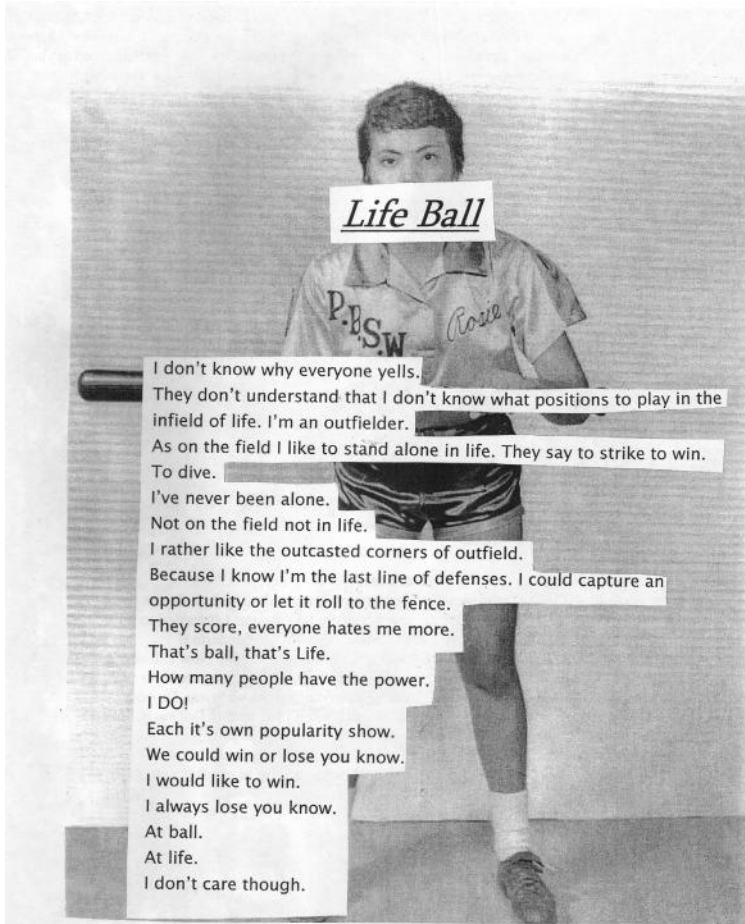 Life Ball
P.B.S.W
Rosie
I don't know why everyone yells.
They don't understand that I don't know what positions to play in the
infield of life. I'm an outfielder.
As on the field I like to stand alone in life. They say to strike to win.
To dive.
I've never been alone.
Not on the field not in life.
I rather like the outcasted corners of outfield.
Because I know I'm the last line of defenses. I could capture an
opportunity or let it roll to the fence.
They score, everyone hates me more.
That's ball, that's Life.
How many people have the power.
I DO!
Each it's own popularity show.
We could win or lose you know.
I would like to win.
I always lose you know.
At ball.
At life.
I don't care though.